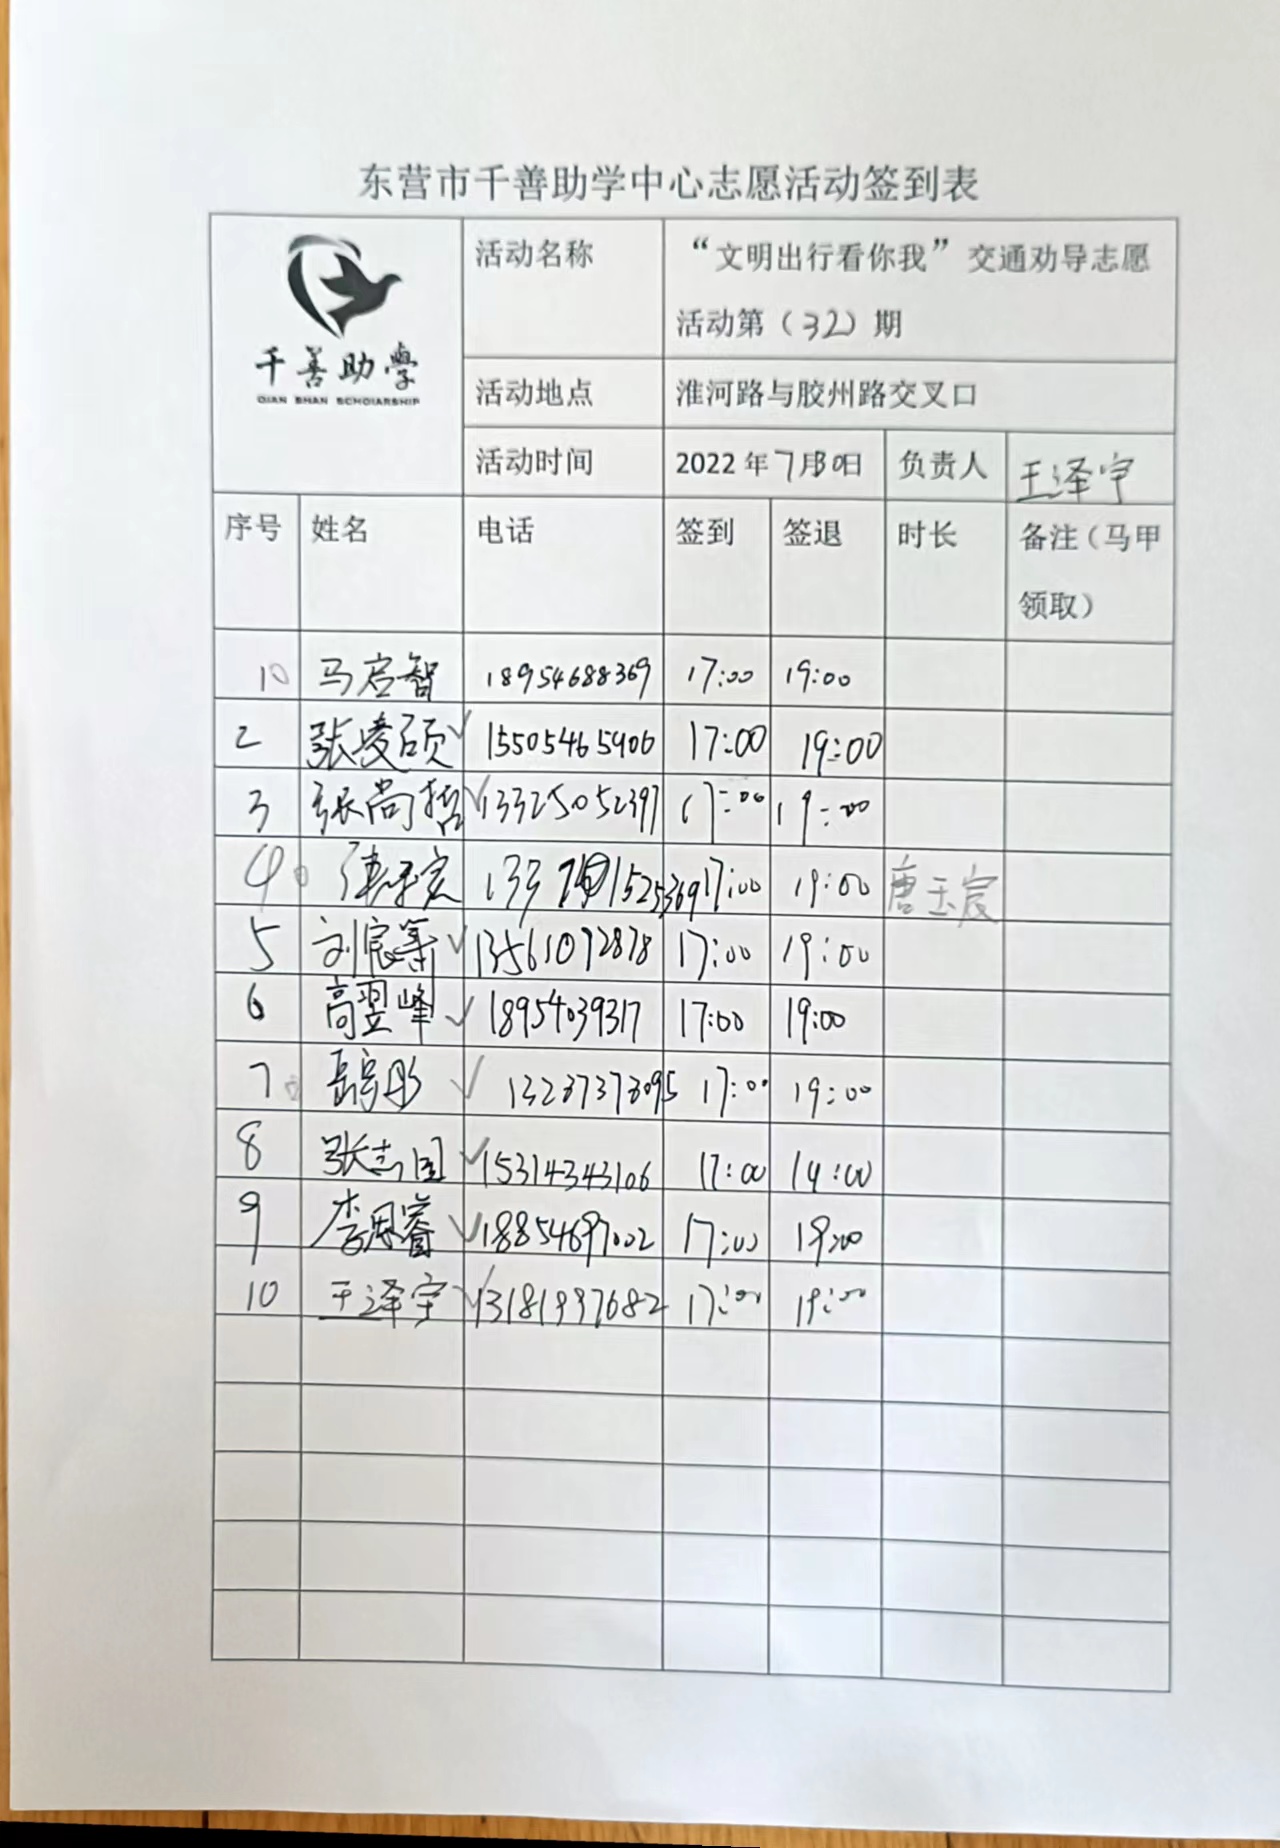 东营市千善助学中心志愿活动签到表
千善助學
QIAN SHAN SCHOLARSHIP
活动名称 “文明出行看你我”交通劝导志愿
活动第（32）期
活动地点 淮河路与胶州路交叉口
活动时间 2022年7月30日 负责人 王泽宇
序号 姓名 电话 签到 签退 时长 备注（马甲
领取）
10 马启智 18954688369 17:00 19:00
2 张凌硕 ✓ 15505465906 17:00 19:00
3 张尚哲 ✓ 13325052397 17:00 19:00
4 133 17:00 19:00 唐玉宸
5 刘宸 ✓ 13561072878 17:00 19:00
6 高翌峰 ✓ 18954039317 17:00 19:00
7 岳 彤 ✓ 13237373095 17:00 19:00
8 张志国 ✓ 15314343106 17:00 19:00
9 李思睿 ✓ 18854697002 17:00 19:00
10 王泽宇 ✓ 13181997682 17:00 19:00